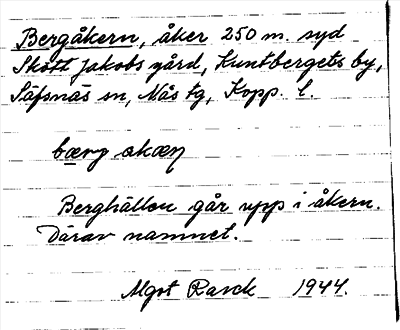 Bergåkern, åker 250 m. syd
Skött Jakobs gård, Kuntbergets by,
Säfsnäs sn, Nås tg, Kopp. l.
bærg akæṇ
Berghällen går upp i åkern.
Därav namnet.
Algot Rask 1944.